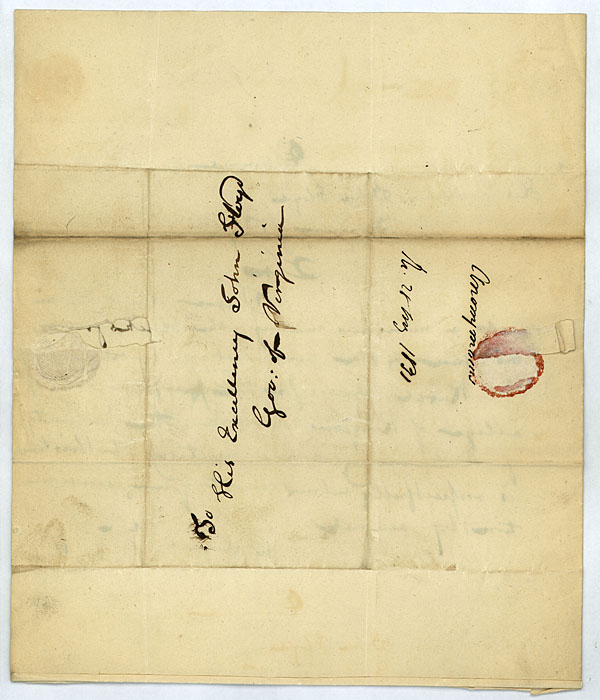 To His Excellency John Floyd
Gov: of Virginia
28 Aug 1831
Anonymous